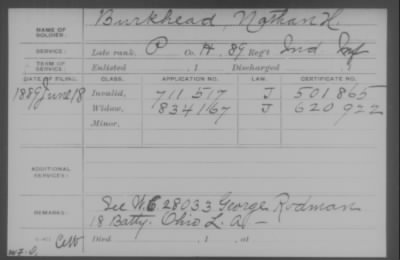 NAME OF SOLDIER: Burkhead, Nathan H.
SERVICE: Late rank, P Co. H, 89 Reg't Ind Inf
TERM OF SERVICE: Enlisted , 1 Discharged , 1
DATE OF FILING. CLASS. APPLICATION NO. LAW. CERTIFICATE NO.
1889 June 18 Invalid, 711 517 J 501 865
Widow, 834167 J 620 922
Minor,
ADDITIONAL SERVICES:
REMARKS: See W.C 28033 George Rodman
18 Batty. Ohio L. A. –
Died , 1 , at